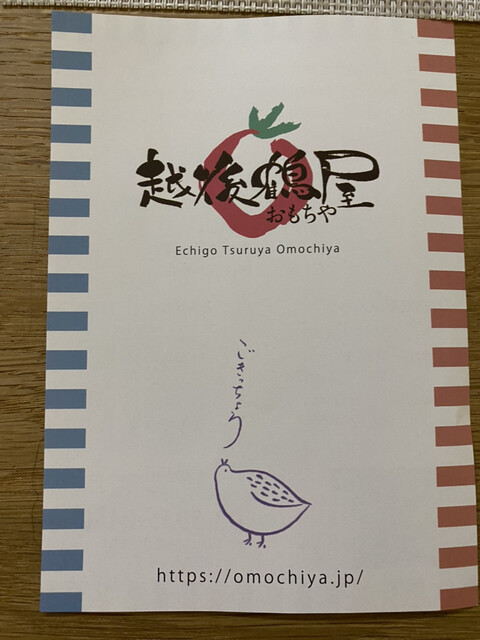 越後鶴屋
おもちや
Echigo Tsuruya Omochiya
ごきっちょう
https://omochiya.jp/